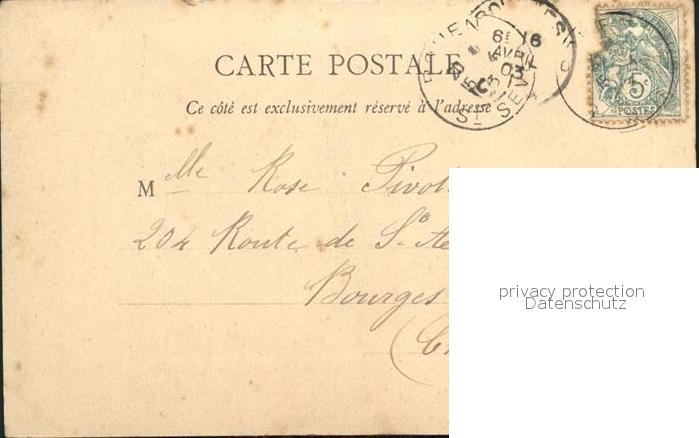 CARTE POSTALE
Ce côté est exclusivement réservé à l'adresse
6E 16
AVRIL
03
5c
POSTES
Mlle Rose
204 Route de Ste
Bourges
privacy protection
Datenschutz